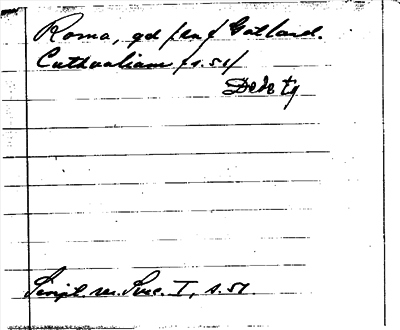 Roma, gd på Gotland.
Cuthualiam (s. 51)
Dede ty
Script. rer. Svec. I, s. 51.